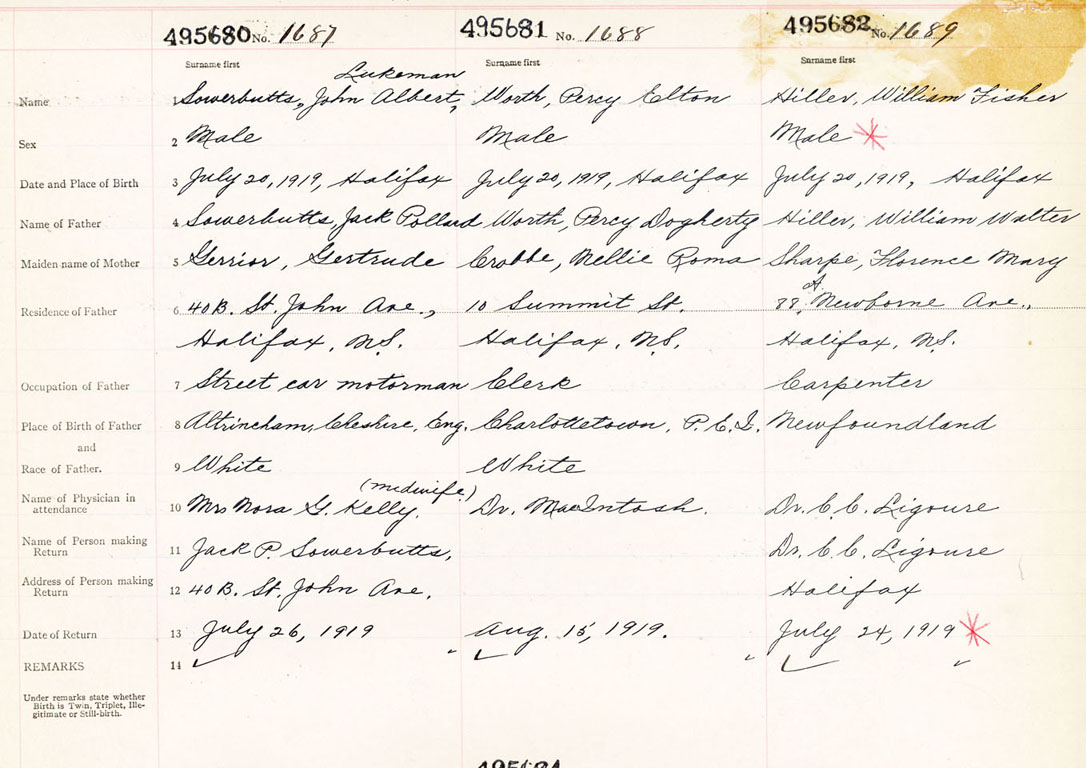 495680 No. 1687 495681 No. 1688 495682 No. 1689
Surname first Surname first Surname first
Lukeman
Name 1 Sowerbutts, John Albert, Worth, Percy Elton Hiller, William Fisher
Sex 2 Male Male Male
Date and Place of Birth 3 July 20, 1919, Halifax July 20, 1919, Halifax July 20, 1919, Halifax
Name of Father 4 Sowerbutts, Jack Pollard Worth, Percy Dogherty Hiller, William Walter
Maiden name of Mother 5 Gerrior, Gertrude Crabbe, Nellie Roma Sharpe, Florence Mary
Residence of Father 6 40B. St. John Ave., 10 Summit St. Newborne Ave.,
Halifax, N.S. Halifax, N.S. Halifax, N.S.
Occupation of Father 7 Street car motorman Clerk Carpenter
Place of Birth of Father 8 Altrincham, Cheshire, Eng. Charlottetown, P.E.I. Newfoundland
and
Race of Father. 9 White White
(midwife)
Name of Physician in
attendance 10 Mrs Nora G. Kelly. Dr. MacIntosh. Dr. C.C. Ligoure
Name of Person making
Return 11 Jack P. Sowerbutts, Dr. C.C. Ligoure
Address of Person making
Return 12 40B. St. John Ave. Halifax
Date of Return 13 July 26, 1919 Aug. 15, 1919. July 24, 1919
REMARKS 14
Under remarks state whether
Birth is Twin, Triplet, Ille-
gitimate or Still-birth.